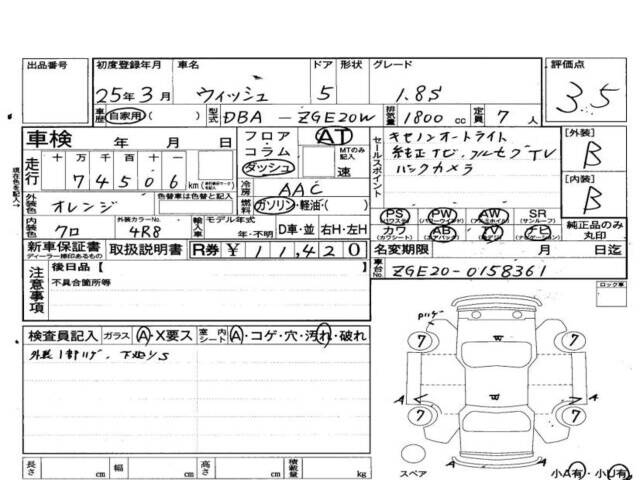 出品番号 初度登録年月 車名 ドア 形状 グレード 評価点
25年3月 ウィッシュ 5 1.8S 3.5
車歴 自家用 ( ) 型式 DBA-ZGE20W 排気量 1800cc 定員 7人
車検 年 月 日 フロア・コラム・ダッシュ AT MTのみ記入 速
セールスポイント キセノンオートライト
純正ナビ・フルセグTV
バックカメラ
[外装] B
[内装] B
現在色を記入→
走行 十万千百十一 74506 km
冷房 AAC
外装色 オレンジ 色替車は色替と記入 燃料 ガソリン・軽油・( )
PS PW AW SR
(パワステ) (パワーウインド) (アルミホイル) (サンルーフ)
カワ AB TV ナビ
(カワシート) (エアバック)
純正品のみ丸印
内装色 クロ 外装カラーNo. 4R8 輸入車 モデル年式 年・不明 D車・並 右H・左H
新車保証書 ディーラー捺印あるもの 取扱説明書 R券 ¥11,420
名変期限 月 日迄
車台No. ZGE20-0158361
注意事項 後日品【
不具合箇所等
ロック車
検査員記入 ガラス A・X要ス 室内シート A・コゲ・穴・汚れ・破れ
7 7
W
A W A
7 7
A
スペア
小A有・小U有
長さ cm 幅 cm 高さ cm 積載量 kg